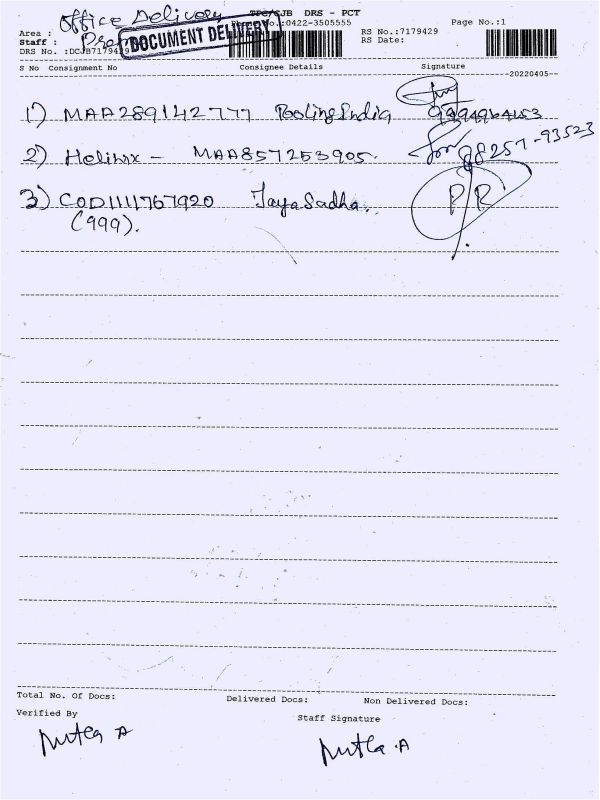 Office Delivery
TPC/CJB DRS - PCT
Page No.:1
Area :
DOCUMENT DELIVERY
No.:0422-3505555
RS No.:7179429
Staff :
RS Date:
DRS No. :DCJB7179429
S No Consignment No Consignee Details Signature
20220405
1) MAA289142777 PoolingIndia
2) Helinix - MAA857253905. 98257-93523
3) COD1111767920 JayaSadha. PR
(999).
Total No. Of Docs: Delivered Docs: Non Delivered Docs:
Verified By Staff Signature